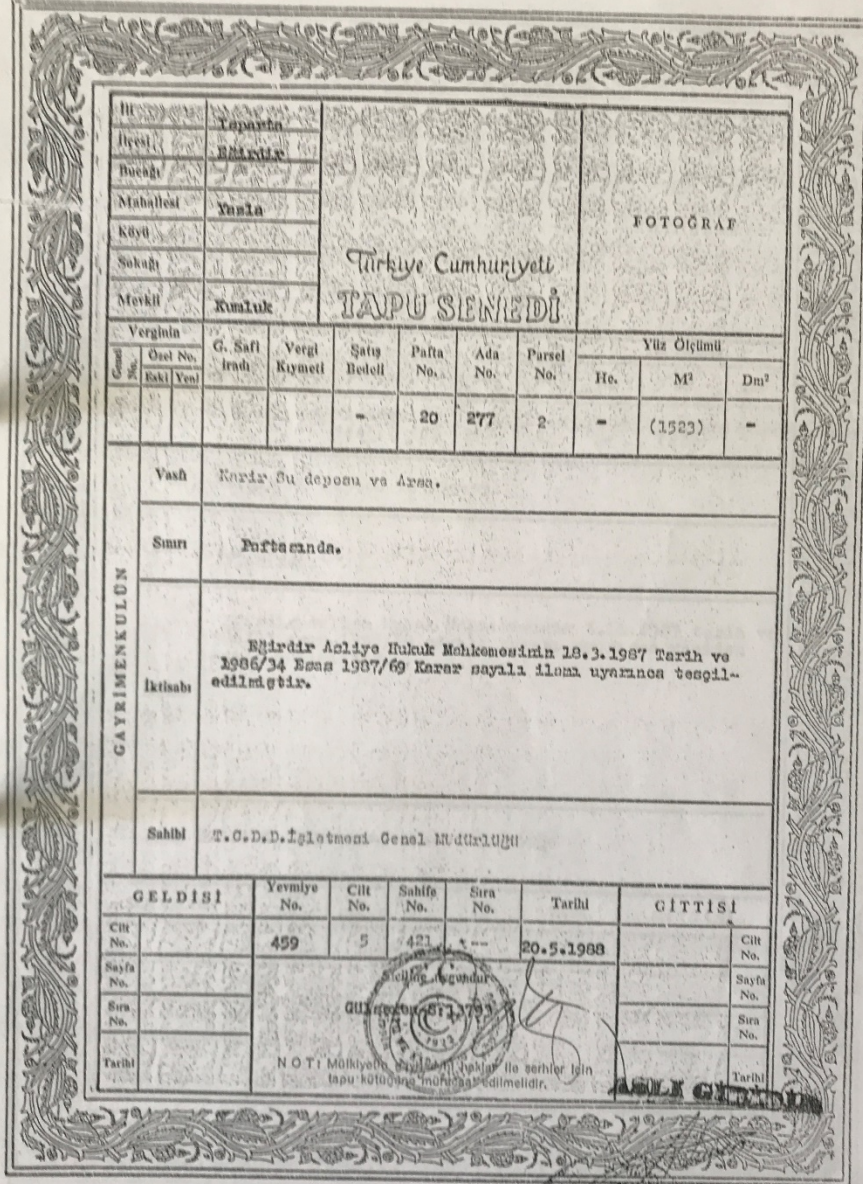 İli Isparta
İlçesi Eğirdir
Bucağı
Mahallesi Yazla
Köyü
Sokağı
Mevkii Kumluk
Türkiye Cumhuriyeti
TAPU SENEDİ
FOTOĞRAF
Verginin
Genel No.
Özel No.
Eski Yeni
G. Safi İradı
Vergi Kıymeti
Satış Bedeli
Pafta No.
Ada No.
Parsel No.
Yüz Ölçümü
He. M² Dm²
- 20 277 2 - (1523) -
GAYRİMENKULÜN
Vasfı Kargir Su deposu ve Arsa.
Sınırı Paftasında.
İktisabı
Eğirdir Asliye Hukuk Mahkemesinin 18.3.1987 Tarih ve
1986/34 Esas 1987/69 Karar sayılı ilamı uyarınca tescil-
edilmiştir.
Sahibi T.C.D.D.İşletmesi Genel Müdürlüğü
GELDİSİ
Yevmiye No.
Cilt No.
Sahife No.
Sıra No.
Tarihi
GİTTİSİ
459 5 421 -- 20.5.1988
Cilt No.
Sayfa No.
Sıra No.
Tarihi
Cilt No.
Sayfa No.
Sıra No.
Tarihi
Siciline uygundur
NOT: Mülkiyetten gayri ayni haklar ile şerhler için
tapu kütüğüne müracaat edilmelidir.
ASLI GİBİDİR